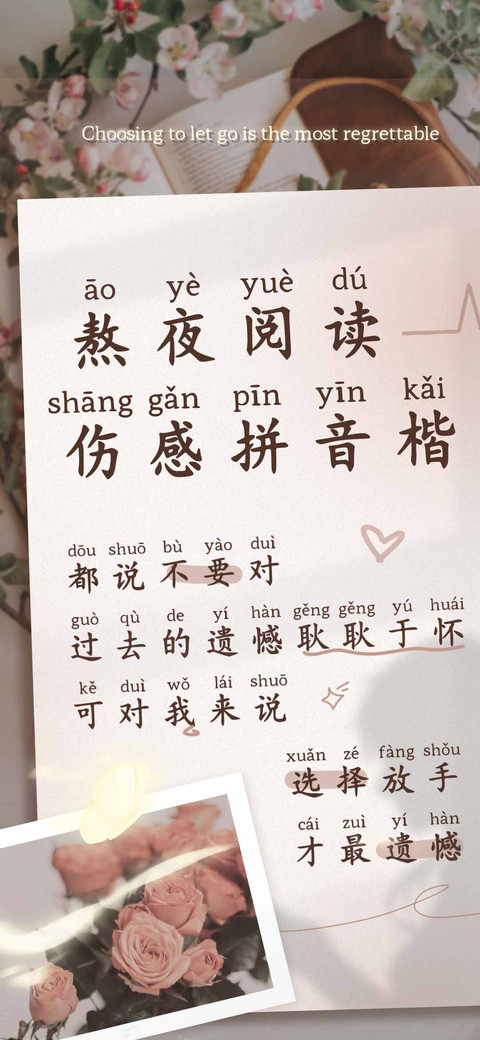 Choosing to let go is the most regrettable
āo yè yuè dú
熬夜阅读
shāng gǎn pīn yīn kǎi
伤感拼音楷
dōu shuō bù yào duì
都说不要对
guò qù de yí hàn gěng gěng yú huái
过去的遗憾耿耿于怀
kě duì wǒ lái shuō
可对我来说
xuǎn zé fàng shǒu
选择放手
cái zuì yí hàn
才最遗憾